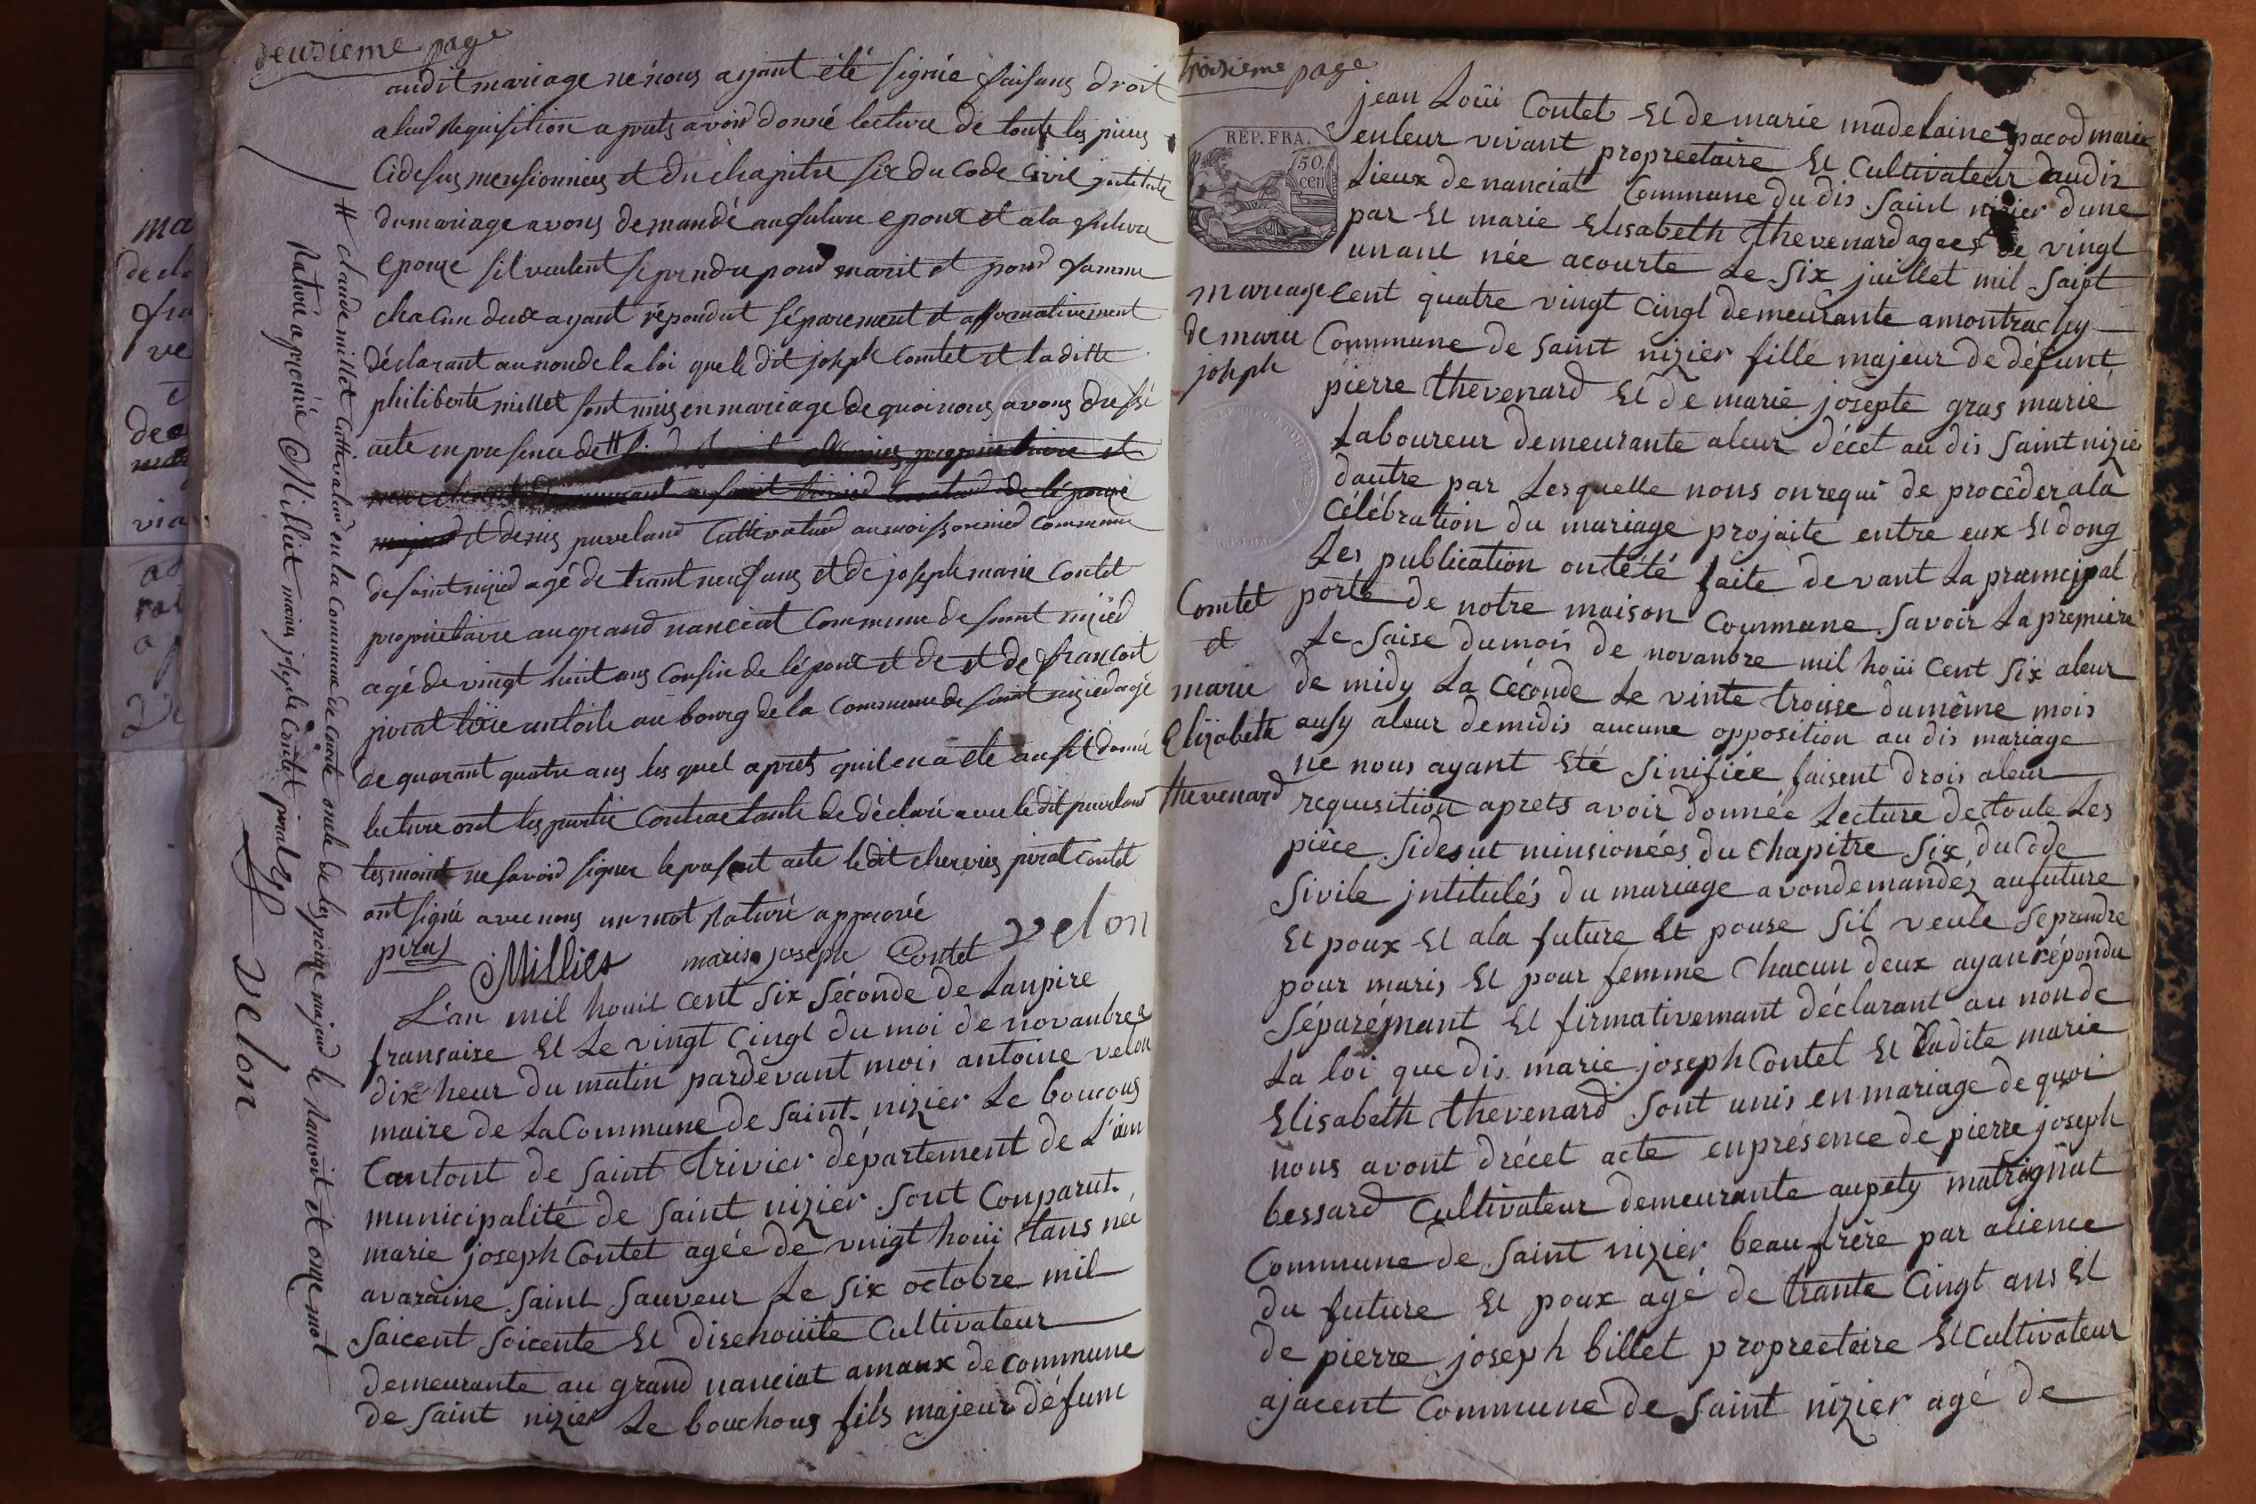 deuzieme page
audit mariage ne nous ayant été signiée faisans droit
a leur Requisition aprets avoir donné lecture de toute les pieces
Cidesus mensionnées et du chapitre six du Code Civil intitulé
du mariage avons demandé au future epoux et a la future
epouze sil veulent se prendre pour marit et pour famme
chacun deux ayant répondut séparement et affirmativement
déclarant au nom de la loi que le dit joseph Comtet et la ditte
philiberte millet sont unis en mariage de quoi nous avons dressé
acte en presence de #
et denis puveland Cultivateur au moissonnied Commune
de saint nizied agé de trant neuf ans et de joseph marie Contet
proprietaire au grand nanciat Commune de saint nizied
agé de vingt huit ans Cousin de lépoux et de et de francoit
piral au bourg de la Commune de saint nizied agé
de quarant quatre ans les quel aprets quil en a ete ausit donné
lecture ont les partie Contractante de déclaré avec le dit puveland
tesmoint ne savoir signer le présent acte le dit piral Contet
ont signé avec nous un mot Raturé approuvé
piral Milliet marie joseph Contet velon
# claude millet Cultivateur en la Commune de Courte oncle de les pouze majeur le Ranvoit et onze mot
Raturé aprouvée Milliet marie joseph Contet piral
velon
L'an mil houit cent six séconde de Lanpire
fransaise Et Le vingt Cingt du moi de novanbre a
dix heur du matin pardevant mois antoine velon
maire de La Commune de saint nizier Le boucous
Cantont de saint trivier département de L'ain
municipalité de saint nizier sont Conparut
marie joseph Contet agée de vingt houii tans née
avaraine saint sauveur Le six octobre mil
saicent soicente Et disehouite Cultivateur
demeurante au grand nanciat amaux de commune
de saint nizier Le bouchoug fils majeur défunc
troisieme page
REP. FRA.
50 cen
jean Loüi Contet Et de marie madelaine pacod marie
enleur vivant proprectaire Et Cultivateur audis
Lieux de nanciat Commune du dis saint nizier dune
par Et marie Elisabeth thevenard agees de vingt
unant née acourte Le six juillet mil saipt
cent quatre vingt cingt demeurante amontrachy
Commune de saint nizier fille majeur de défunt
pierre thevenard Et de marie josepte gras marié
Laboureur demeurante aleur décet au dis saint nizie
dautre par Lesquelle nous onrequi de procéder ala
Célébration du mariage projaité entre eux Et dong
Les publication ontété faite devant La preencipal
porte de notre maison Courmune savoir La premiere
Le saise dumois de novanbre mil hoüi cent six aleur
de midy La Céconde Le vinte trouse dumême mois
ausy aleur demidis aucune opposition au dis mariage
ne nous ayant Eté sinifiée faisent drois aleur
requisition aprets avoir donnée Lecture de toute Les
pièce sidesut minsionées du Chapitre six du Code
sivile jntitulés du mariage avondemandéz aufuture
Et poux Et ala future Et pouse sil veule seprendre
pour maris Et pour femme Chacun deux ayan répondu
séparémant Et firmativemant déclarant au nonde
La loi que dis marie joseph Contet Et Ladite marie
Elisabeth thevenard sont unis en mariage de quoi
nous avont drécet acte enprésence de pierre joseph
bessard Cultivateur demeurante aupety matrignat
Commune de saint nizier beau frère par alience
du future Et poux agé de trante Cingt ans Et
de pierre joseph billet proprectaire Et Cultivateur
ajacent Commune de saint nizier agé de
mariage
de marie
joseph
Comtet
et
marie
Elizabeth
thevenard